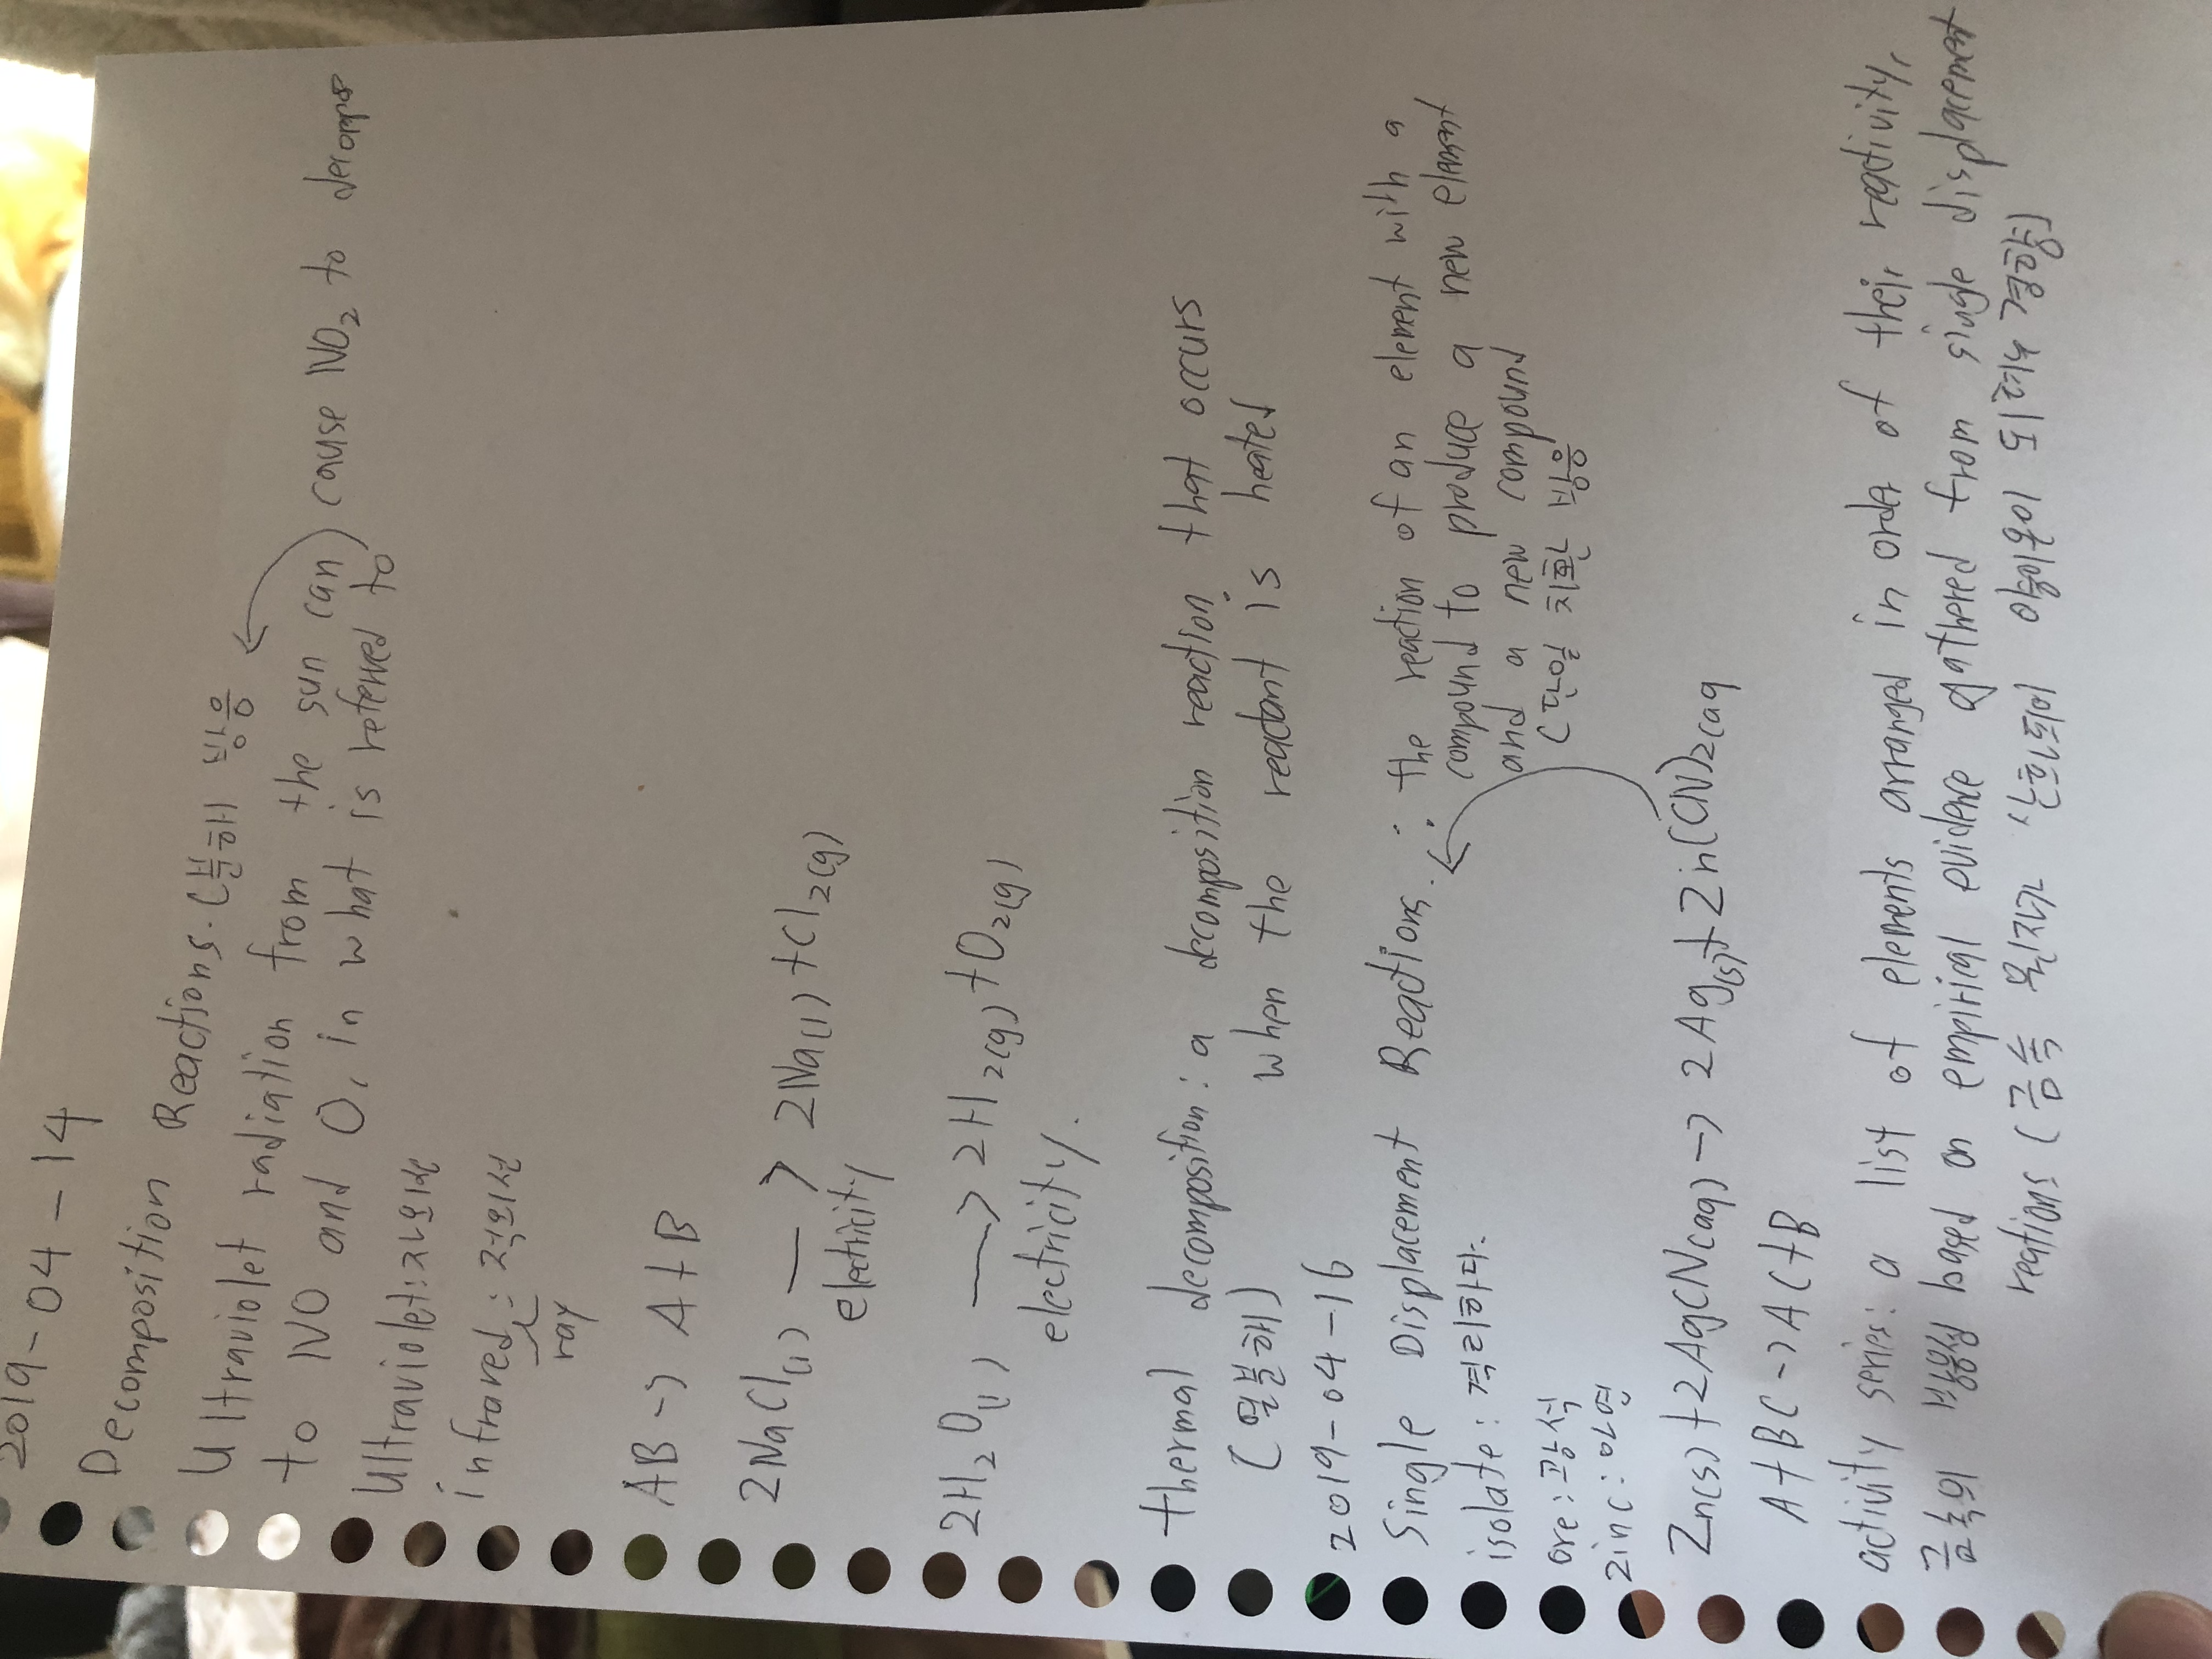 2019-04-14
Decomposition Reactions. (분해 반응
Ultraviolet radiation from the sun can) cause NO2 to decompose
to NO and O, in what is referred to
Ultraviolet: 자외선
infrared: 적외선
ray
AB → A+B
2NaCl(l) → 2Na(l)+Cl2(g)
electricity
2H2O(l) → 2H2(g)+O2(g)
electricity.
thermal decomposition: a decomposition reaction that occurs
(열분해) when the reactant is heated
2019-04-16
Single Displacement Reactions.: the reaction of an element with a
isolate: 격리하다. compound to produce a new element
ore: 광석 and a new compound
zinc: 아연 (단일 치환 반응
Zn(s)+2AgCN(aq) → 2Ag(s)+Zn(CN)2(aq
A+BC → AC+B
activity series: a list of elements arranged in order of their reactivity,
금속의 반응성 based on empirical evidence gathered from single displacement
reations (금속 원자가 산화되어 양이온이 되려는 경향)